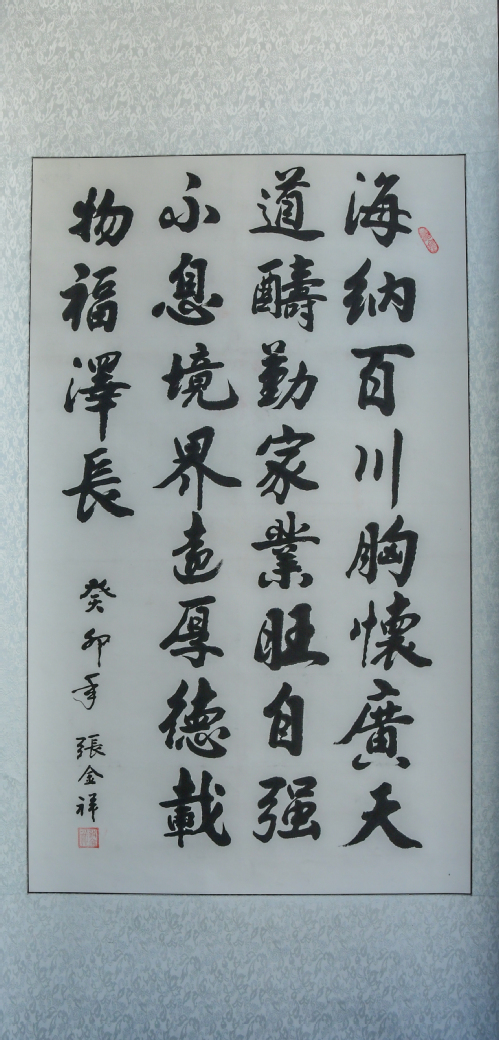 海纳百川胸懷廣天
道醻勤家業旺自强
不息境界遠厚德載
物福澤長
癸卯年 張金祥